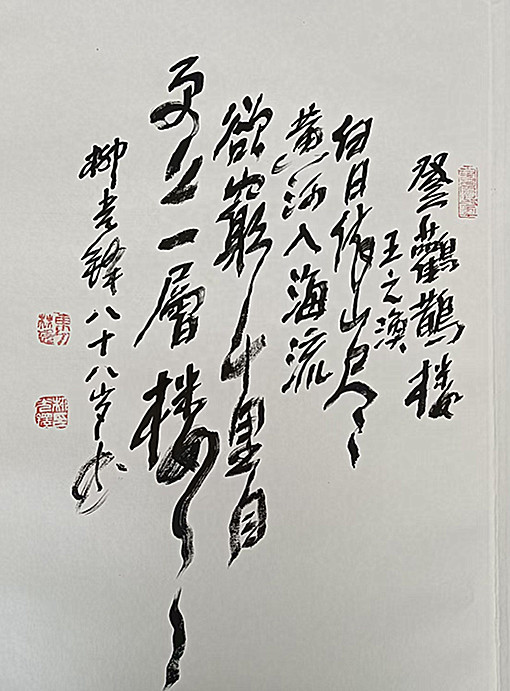 登鸛鵲樓
王之渙
白日依山尽
黄河入海流
欲窮千里目
更上一層楼
柳吉鋒八十八岁书